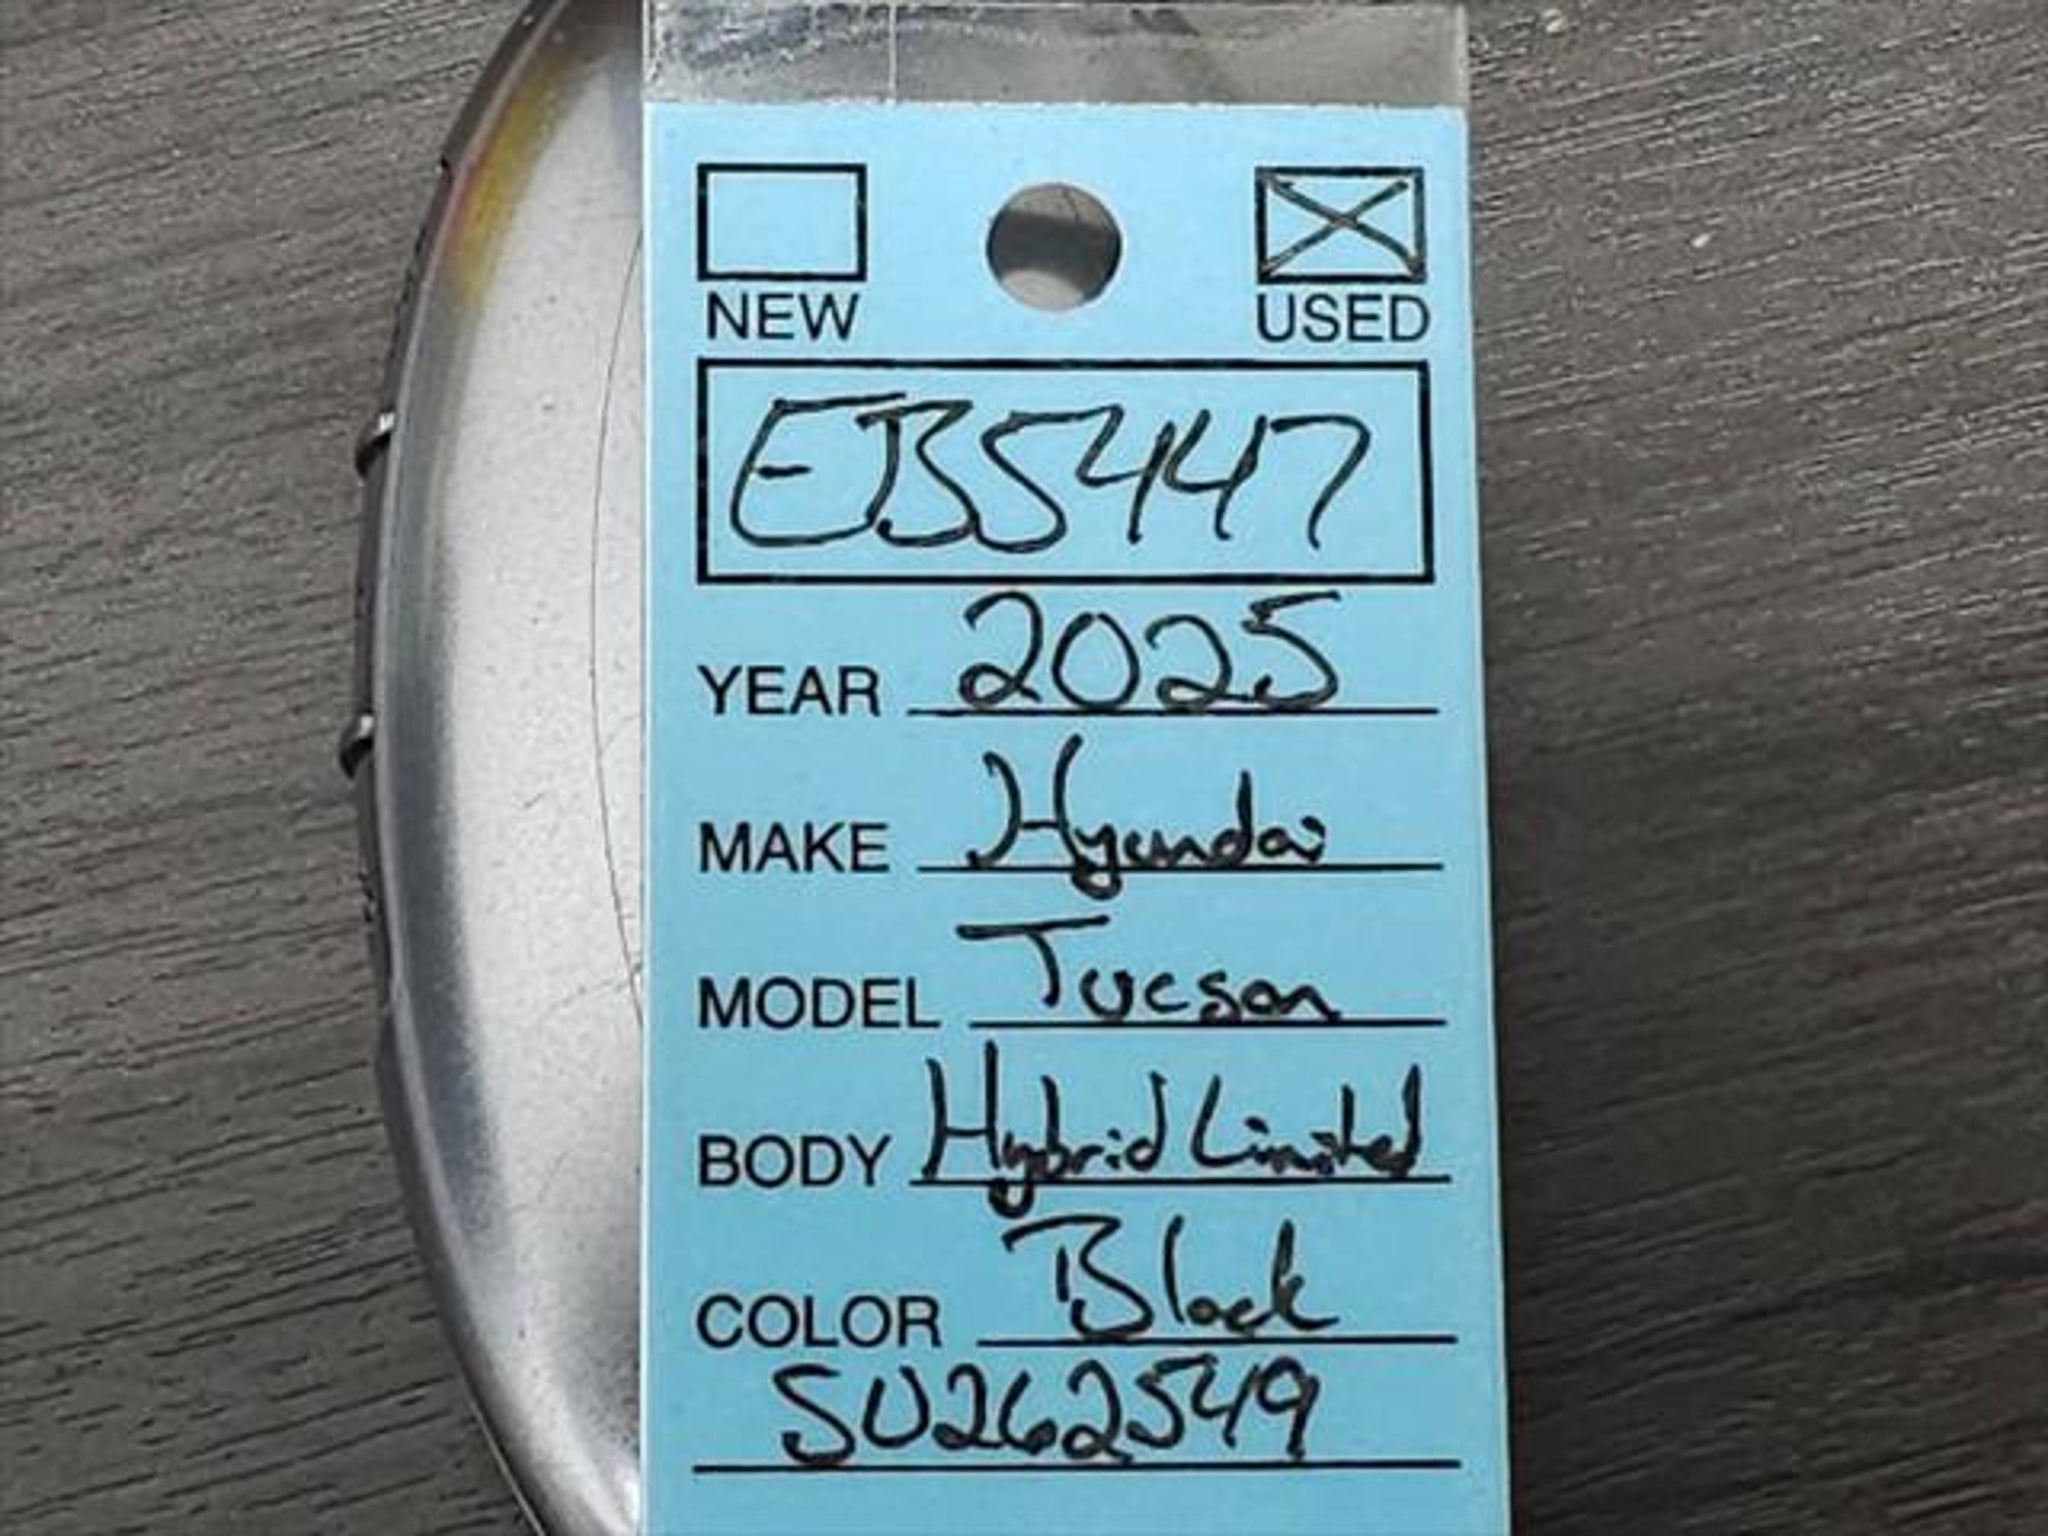 NEW USED
EB5447
YEAR 2025
MAKE Hyundai
MODEL Tucson
BODY Hybrid Limited
COLOR Black
SU262549